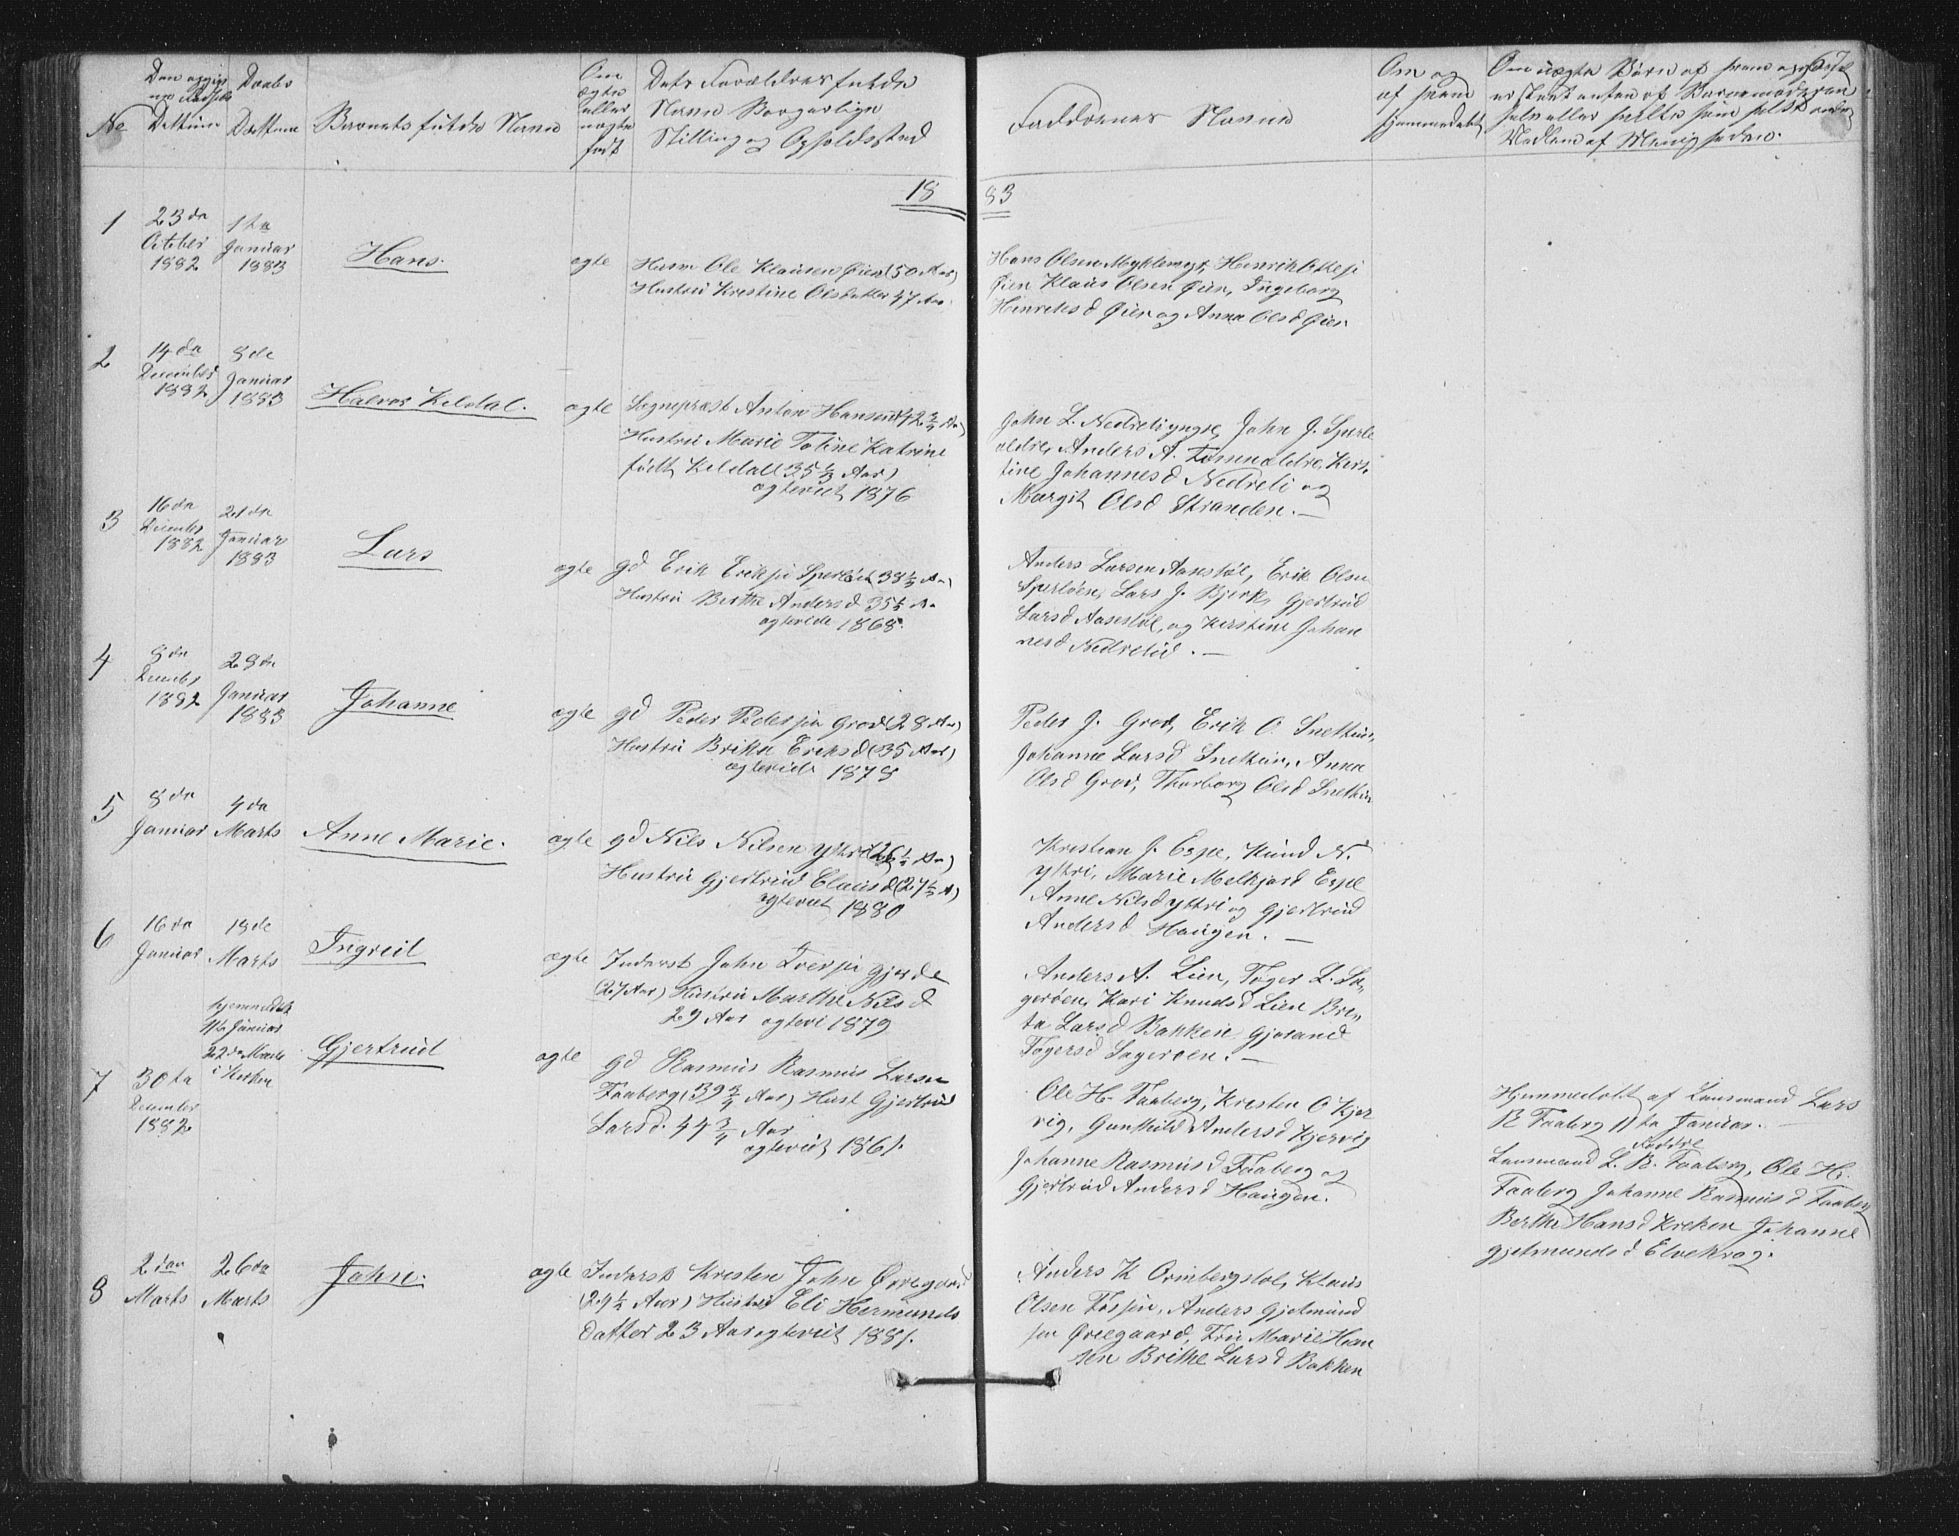 No
Den opgivne Fødsels Dattum
Daabs Dattum
Barnets fulde Navn
Om ægte eller uægte født
Dets Forældres fulde
Navn Borgerlige
Stilling og Opholdssted
Faddernes Navne
Om og af hvem hjemmedøbt
Om uægte Børn af hvem opgivet
67
18 83
1
23de October 1882
1ste Januar 1883
Hans.
ægte
Husm Ole Klausen Øien (50 Aar)
Hustru Kristine Olsdatter 47 Aar.
Hans Olsen Myklemyr, Henrik Ottesen
Øien Klaus Olsen Øien, Ingeborg
Henriksd Øien og Anna Olsd Øien
2
14de December 1882
8de Januar 1883
Halvor Keldal.
ægte
Sognepræst Anton Hansen (42 3/4 Aar)
Hustru Marie Toline Katrine
født Keldal (35 1/2 Aar)
ægteviet 1876
John L. Nedreli yngre, John J. Sperle
ældre, Anders A. ældre, Kirs-
tine Johannesd Nedreli og
Margit Olsd Stranden. —
3
16de December 1882
21de Januar 1883
Lars
ægte
Gd Erik Eriksen Sperløen 38 1/2 Aar
Hustru Berthe Andersd 35 1/2 A.
ægteviede 1868.
Anders Larsen Aasestøl, Erik Olsen
Sperløen, Lars J. Bjerk, Gjertrud
Larsd Aasestøl, og Kirstine Johan
nesd Nedrelid. —
4
8de December 1882
28de Januar 1883
Johanne
ægte
gd Peder Pedersen Grov (28 Aar)
Hustru Brita Eriksd (35 Aar)
ægteviede 1878
Peder J. Grov, Erik O. Snetkun,
Johanne Larsd Snetkun, Anna
Olsd Grov, Thorborg Olsd Snetkun
5
8de Januar
4de Marts
Anne Marie.
ægte
gd Nils Nilsen Yttri (26 1/2 Aar)
Hustru Gjertrud Clausd (27 1/2 A)
ægteviet 1880
Kristian J. Espe, Knud N.
Yttri, Marie Melkjord Espe
Anne Nilsd Yttri og Gjertrud
Andersd Haugen. —
6
16de Januar
18de Marts
Ingreid
ægte
Inderst John Iversen Gjerde
(27 Aar) Hustru Marthe Nilsd
29 Aar ægtevi 1879
Anders A. Lien, Tøger L. Sø-
gerøen, Kari Knudsd Lien Bri-
ta Larsd Bakken Gjørand
Tøgersd Søgerøen. —
7
30te December 1882
hjemmedøbt
11te Januar
22de Marts
i Kirken
Gjertrud
ægte
gd Rasmus Rasmus Larsen
Faaberg (39 3/4 Aar) Hust Gjertrud
Larsd. 44 3/4 Aar
ægteviet 1861.
Ole H. Faaberg, Kristen O Kjer
vig, Gunhild Andersd Kjervig
Johanne Rasmusd Faaberg og
Gjertrud Andersd Haugen.
Hjemmedøbt af Lensmand Lars
R Faaberg 11te Januar. —
Faddre
Lensmand L. R. Faaberg, Ole H.
Faaberg Johanne Rasmusd Faaberg
Berthe Hansd Kreken Johanne
Gjelmundsd Elvekrog.
8
2den Marts
26de Marts
John.
ægte
Inderst Kristen John Øvregaard
(24 1/2 Aar) Hustru Eli Hermunds
datter 23 Aar ægteviet 1881.
Anders K Ormbergstøl, Klaus
Olsen Fossøen, Anders Gjelmund
sen Øvregaard, Fru Marie Han
sen Brithe Larsd Bakken